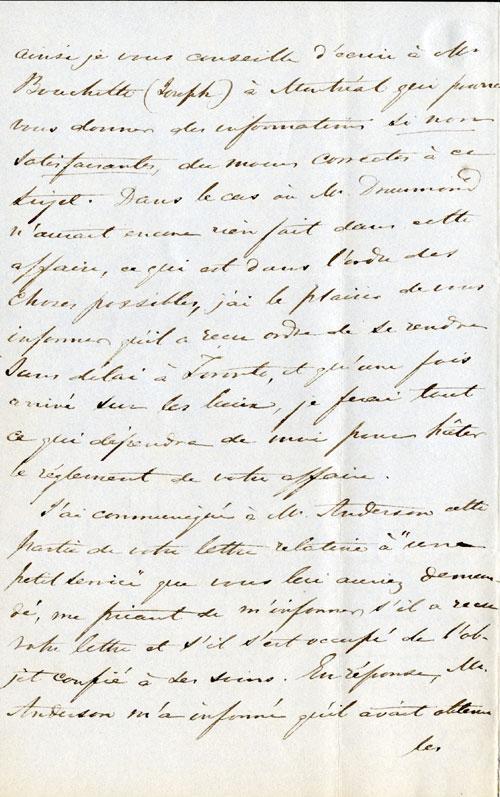 ainsi je vous conseille d'écrire à Mr
Bouchette (Joseph) à Montréal qui pourra
vous donner des informations si non
satisfaisantes, du moins correctes à ce
sujet. Dans le cas où Mr. Drummond
n'aurait encore rien fait dans cette
affaire, ce qui est dans l'ordre des
choses possibles, j'ai le plaisir de vous
informer qu'il a reçu ordre de se rendre
sans délai à Toronto, et qu'une fois
arrivé sur les lieux, je ferai tout
ce qui dépendra de moi pour hâter
le règlement de votre affaire.
J'ai communiqué à Mr. Anderson cette
partie de votre lettre relative à "une
petit service" que vous lui auriez deman
dé, me priant de m'informer s'il a reçu
votre lettre et s'il s'est occupé de l'ob-
jet confié à ses soins. En réponse, Mr.
Anderson m'a informé qu'il avait obtenu
les